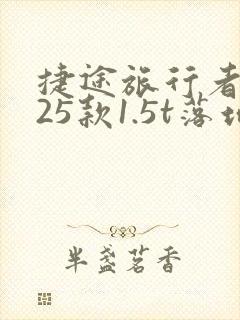 捷途旅行者
25款1.5t落地
半盏茗香